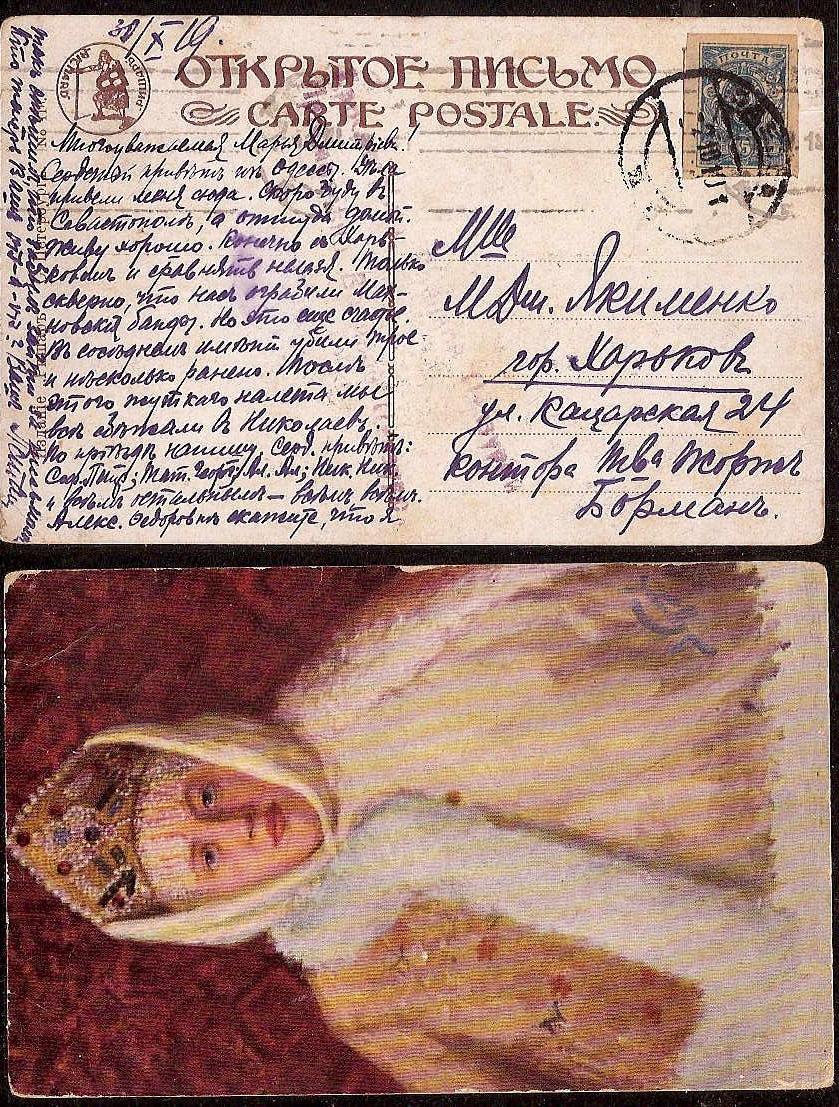 30/X 19.
ОТКРЫТОЕ ПИСЬМО
CARTE POSTALE
RICHARD
ПОЧТА
Многоуважаемая Марья Дмитріевн.!
Сердечный привѣтъ изъ Одессы. Дѣла
привели меня сюда. Скоро буду въ
Севастополѣ, а оттуда домой.
Живу хорошо. Конечно съ Харь-
ковомъ и сравнять нельзя. Только
скверно, что насъ ограбили Мах-
новскія банды. Но это еще счастье.
Въ сосѣднемъ имѣніи убили трое-
и нѣсколько ранено. Послѣ
этого жуткаго налета мы
всѣ сбѣжали въ Николаевъ.
По пріѣздѣ напишу. Серд. привѣтъ:
и всѣмъ остальнымъ — всѣмъ, всѣмъ.
Алекс. Федоровнѣ скажите, что я
Mlle
М. Дм. Якименко
гор. Харьковъ
ул. Кацарская 24
контора Т-ва Жоржъ
Борманъ.